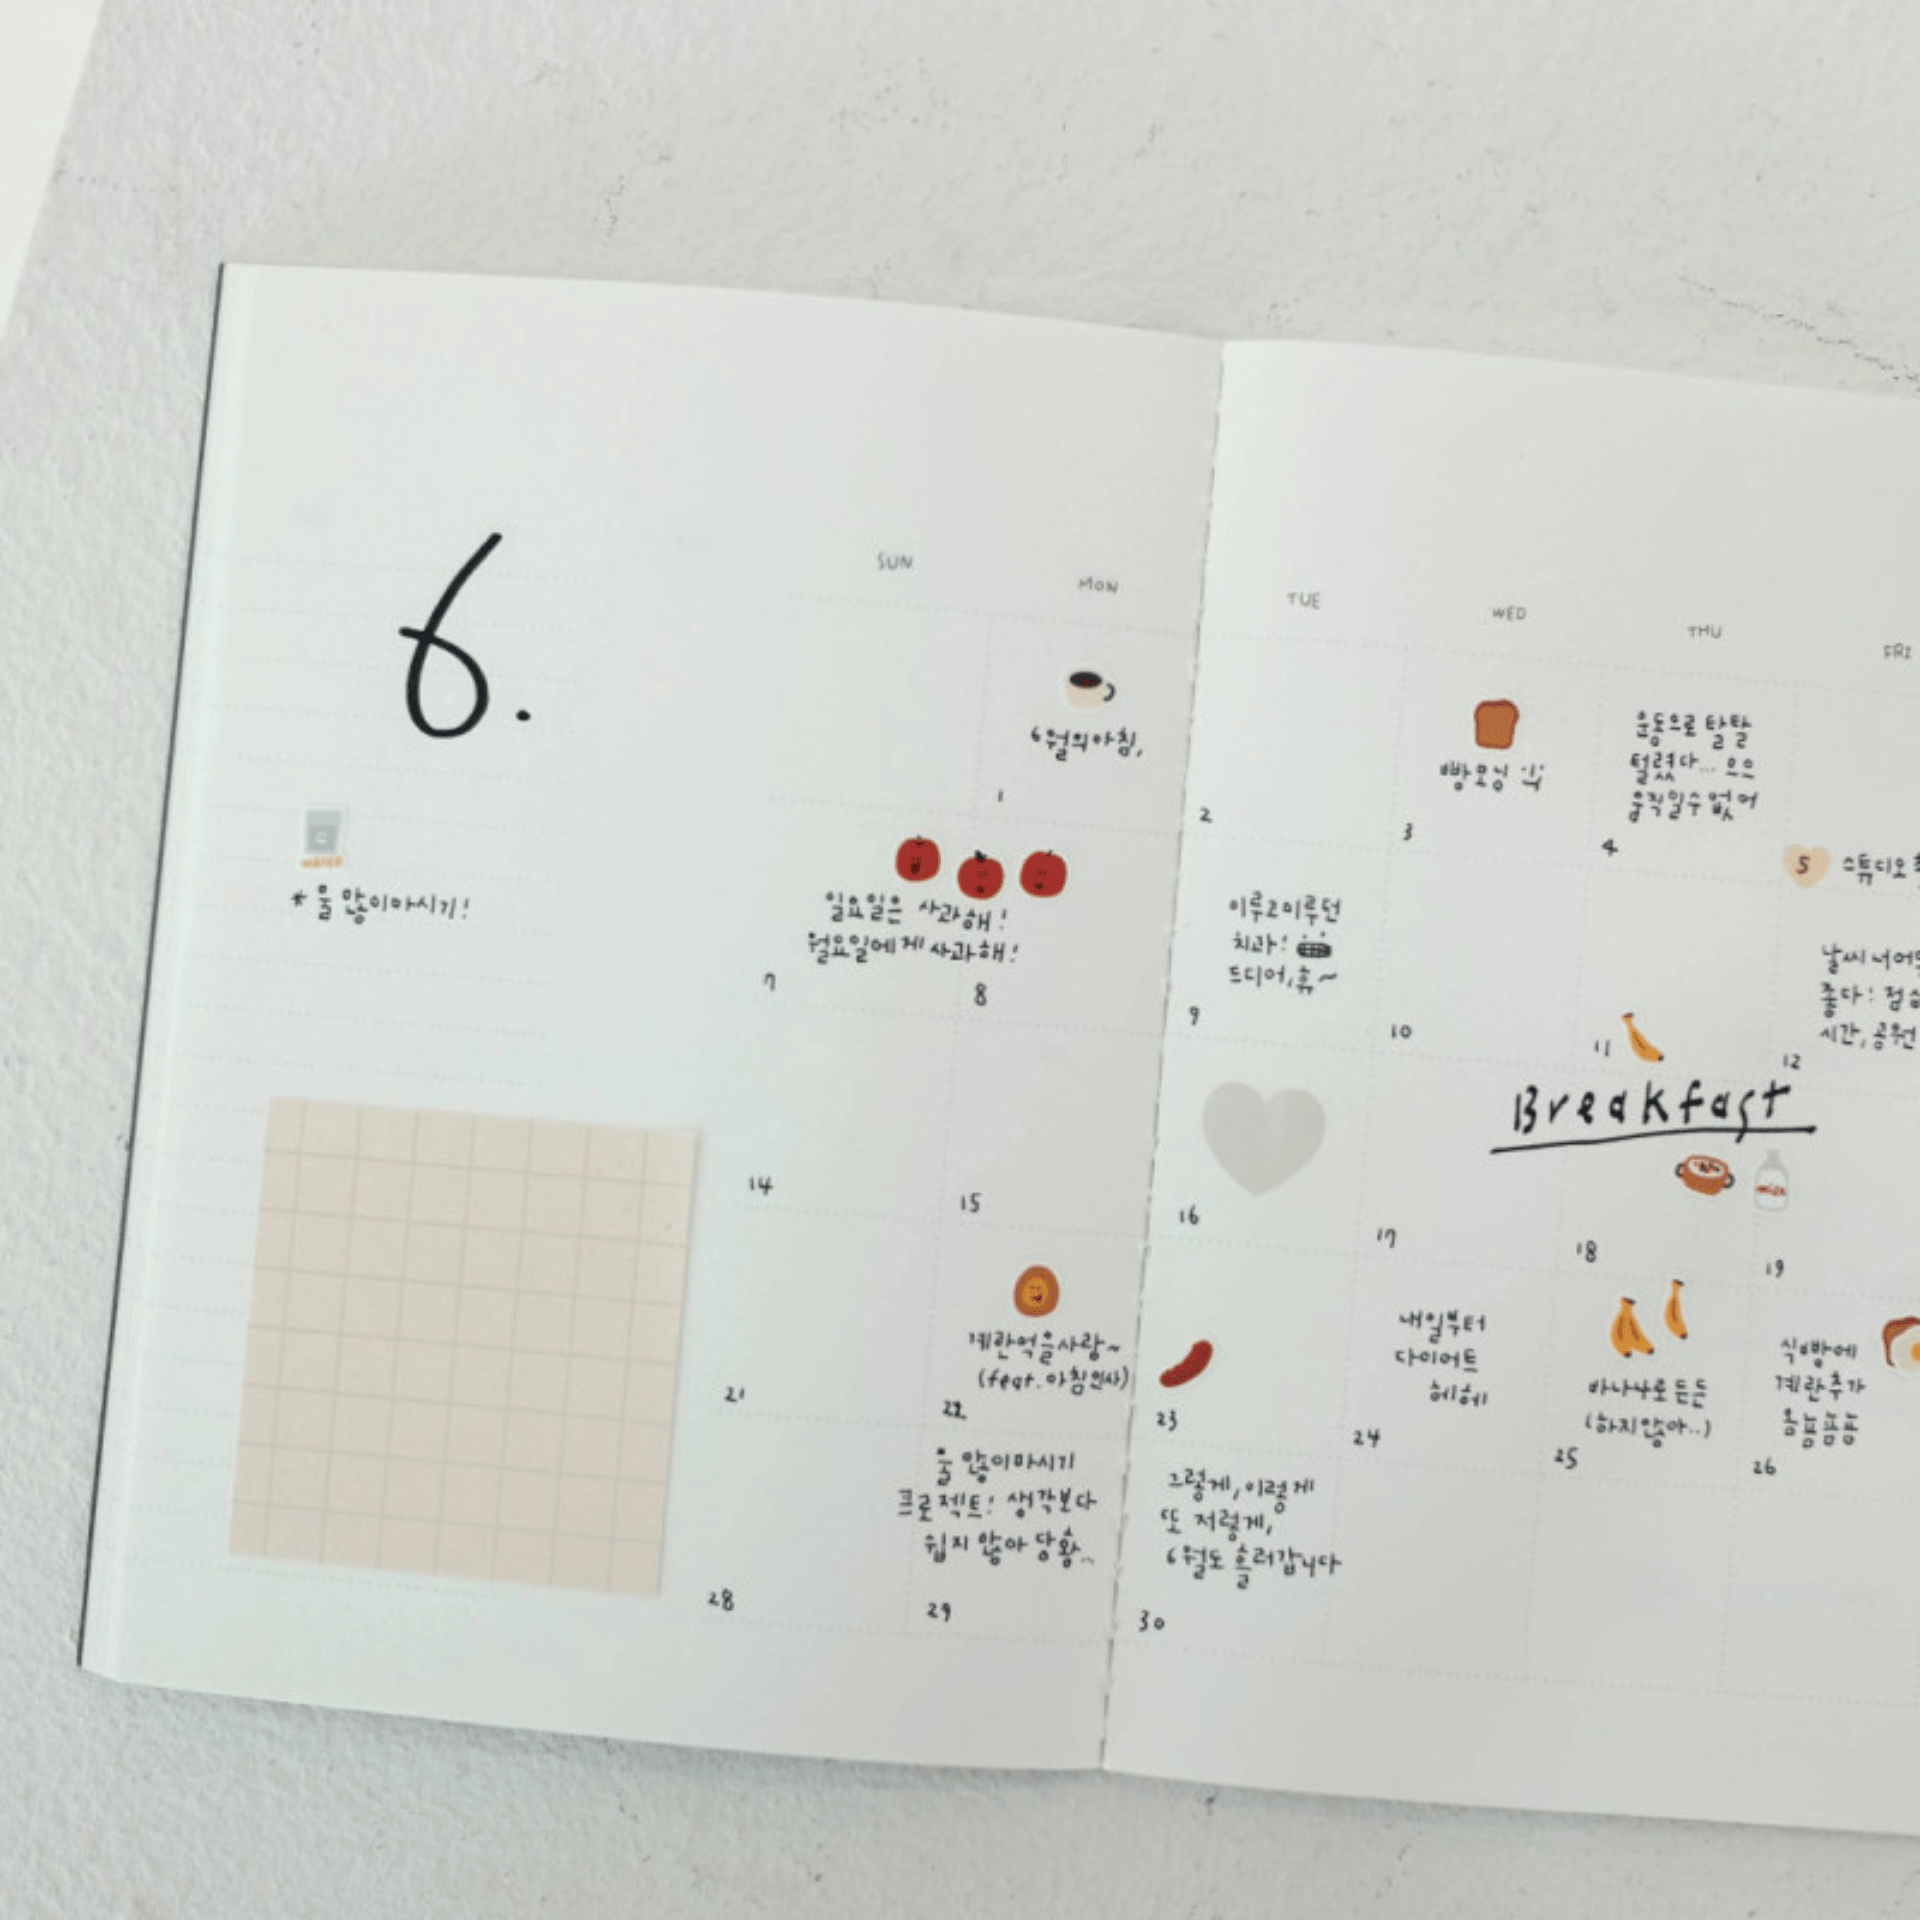 6.
SUN MON TUE WED THU FRI
6월의 아침,
1
2
빵모닝
3
운동으로 탈탈
털렸다... 으으
움직일수 없어
4
5 스튜디오
*물 많이 마시기!
일요일은 사과해!
월요일에게 사과해!
7
8
미루고 미루던
치과!
드디어, 휴~
9
10
11
날씨 너어
좋다! 점심
시간, 공원
12
Breakfast
milk
14
15
16
17
18
19
21
계란먹을사랑~
(feat. 아침인사)
22
23
내일부터
다이어트
헤헤
24
바나나로 든든
(하지않아..)
25
식빵에
계란추가
욤뇸뇸뇸
26
28
물 많이마시기
프로젝트! 생각보다
쉽지 않아 당황...
29
그렇게, 이렇게
또 저렇게,
6월도 흘러갑니다
30